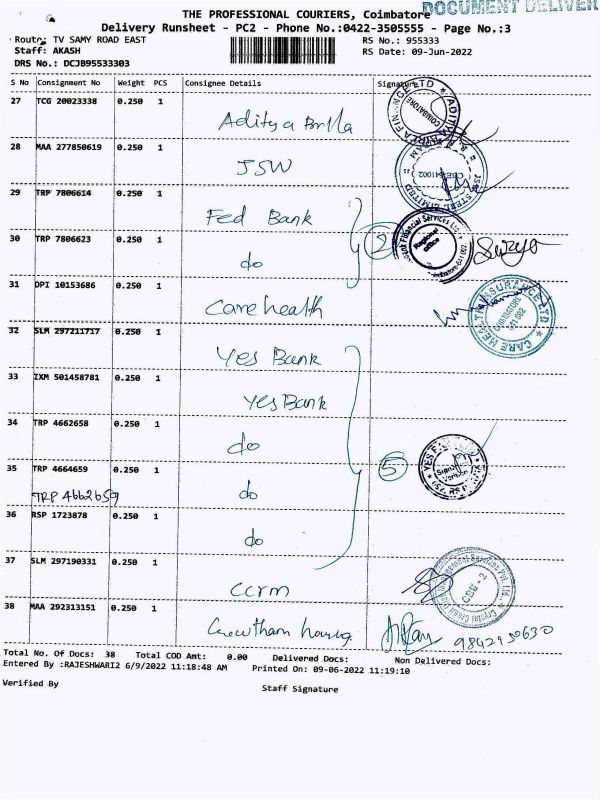 DOCUMENT DELIVER
THE PROFESSIONAL COURIERS, Coimbatore
Delivery Runsheet - PC2 - Phone No.:0422-3505555 - Page No.:3
Route: TV SAMY ROAD EAST
RS No.: 955333
Staff: AKASH
RS Date: 09-Jun-2022
DRS No.: DCJB95533303
S No Consignment No Weight PCS Consignee Details Signature
27 TCG 20023338 0.250 1
Aditya Birla
28 MAA 277850619 0.250 1
JSW
29 TRP 7806614 0.250 1
Fed Bank
2
30 TRP 7806623 0.250 1
do
31 DPI 10153686 0.250 1
Care health
32 SLM 297211717 0.250 1
Yes Bank
33 IXM 501458781 0.250 1
Yes Bank
34 TRP 4662658 0.250 1
do
5
35 TRP 4664659 0.250 1
do
TRP 4662659
36 RSP 1723878 0.250 1
do
37 SLM 297190331 0.250 1
CCRM
38 MAA 292313151 0.250 1
Total No. Of Docs: 38 Total COD Amt: 0.00 Delivered Docs: Non Delivered Docs:
Entered By :RAJESHWARI2 6/9/2022 11:18:48 AM Printed On: 09-06-2022 11:19:10
Verified By
Staff Signature